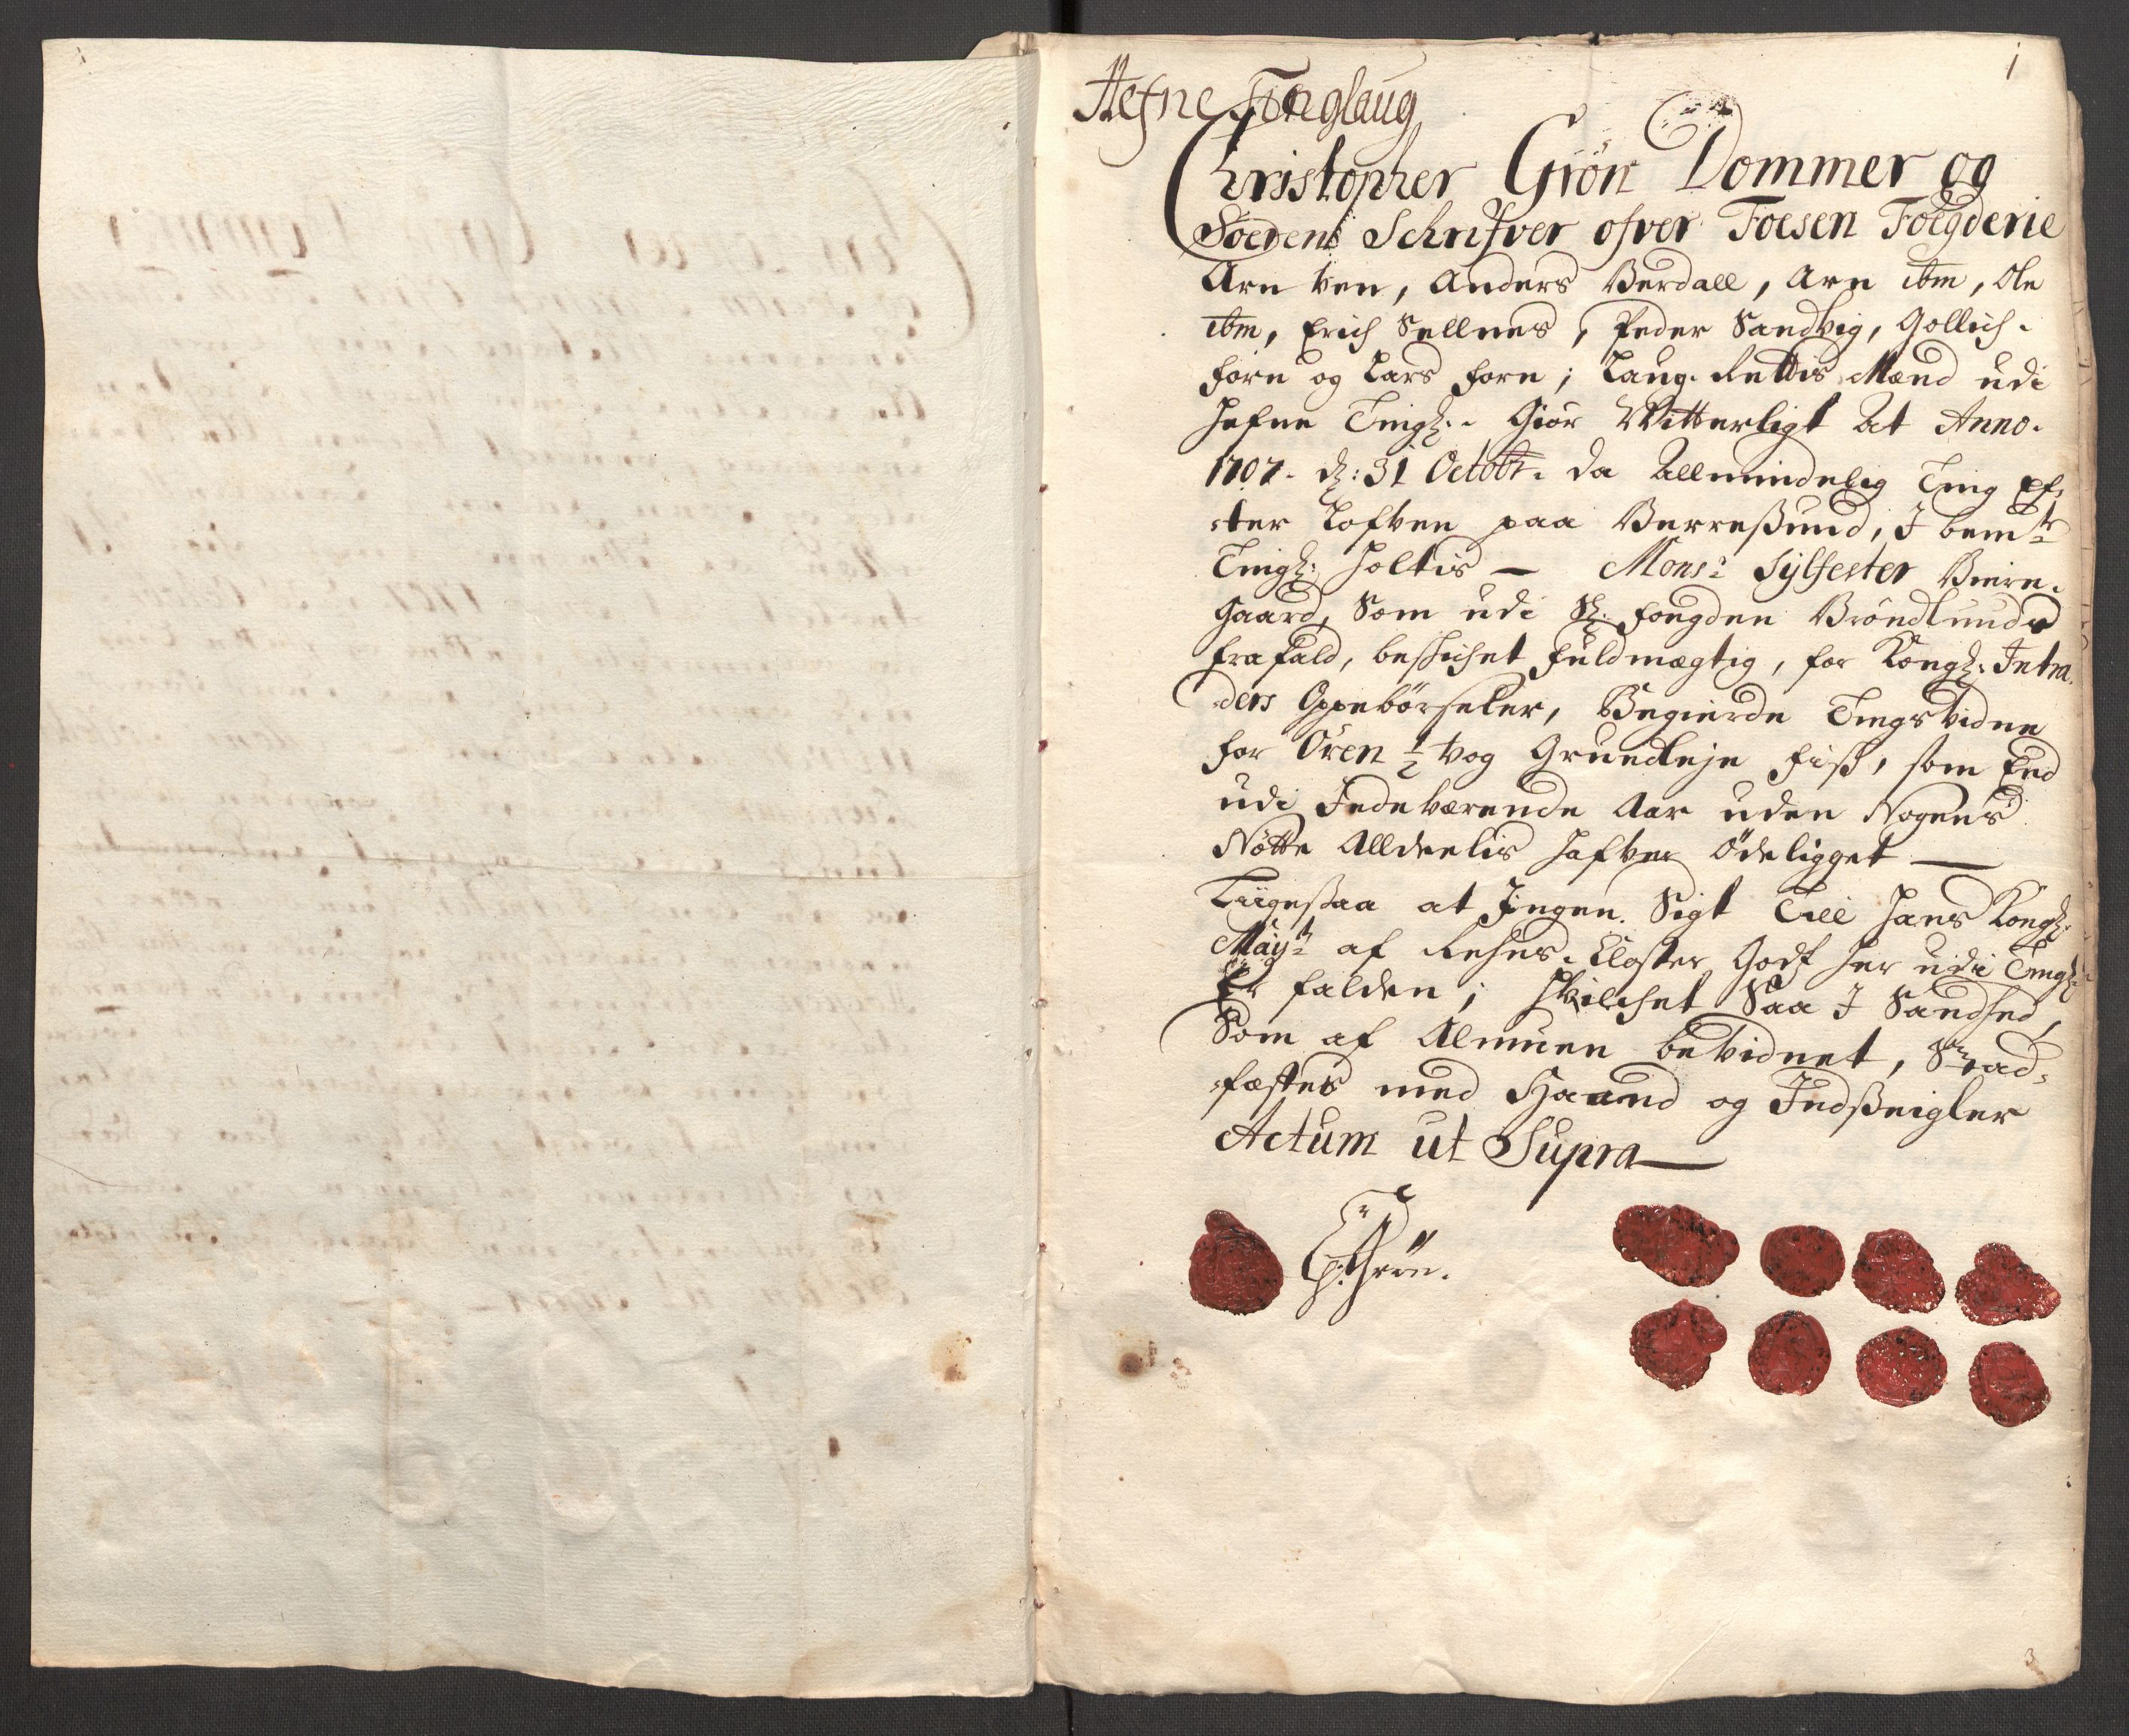 1
Hefne Tinglaug
Christopher Grön Dommer og
Soeren Schrifver ofver Foesen Foegderie
Arn Ven, Anders Berdall, Arn ibm, Ole
ibm, Erich Sellnes, Peder Sandvig, Gollich
Forn og Lars Forn; Laug-Rettis Mænd udi
Hefne Tingl: Giör Witterligt At Anno
1707. d: 31 Octobr. da Allmindelig Ting Ef-
ter Lofven paa Berresund, I bemte
Tingl: Holtis — Monsr Sylfester Biere-
gaard, Som udi Sl: Fougden Bröndlunds
Frafald, beschichet Fuldmægtig, for Kongl: Intra-
ders Oppebörseler, Begierde Tingsvidne
for Ören ½ vog Grundleje Fisk, som End
udi Indeværende Aar uden Nogens
Nötte Alldeelis Hafver Öde ligget —
Liigesaa at Ingen Sigt Till Hans Kongl:
Mayts af Rehns-Closter Godz her udi Tingl:
Er falden; Hvilchet Saa I Sandhed,
Som af Almuen bevidnet, Stad-
fæstes med Haand og Indseigler
Actum ut Supra —
C: Grön.
3